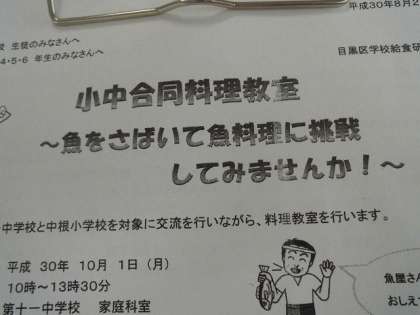 平成30年8月2
校 生徒のみなさんへ
4・5・6 年生のみなさんへ
目黒区学校給食研
小中合同料理教室
～魚をさばいて魚料理に挑戦
してみませんか！～
中学校と中根小学校を対象に交流を行いながら、料理教室を行います。
平成 30年 10月 1日（月）
10時～13時30分
第十一中学校 家庭科室
魚屋さん
おしえ